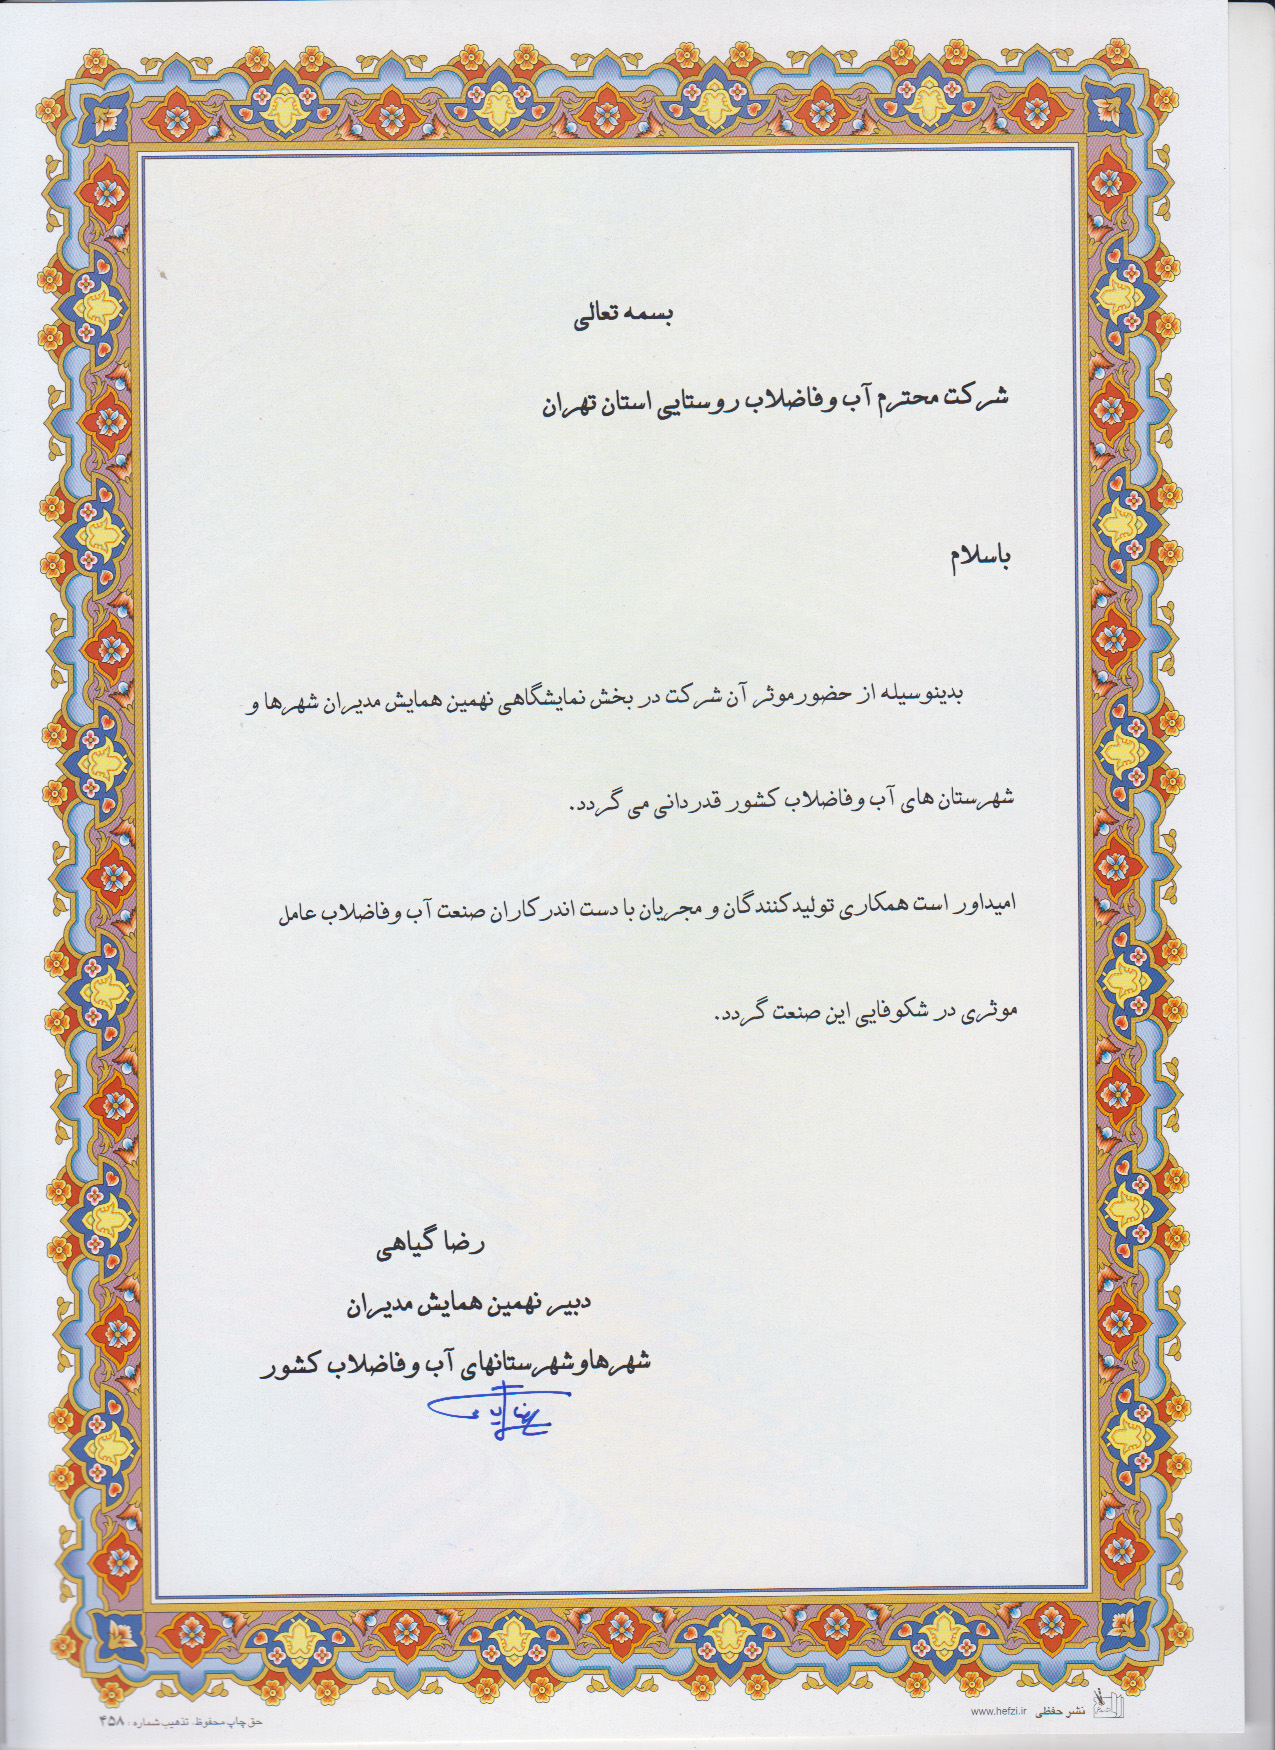 بسمه تعالی
شرکت محترم آب و فاضلاب روستایی استان تهران
باسلام
بدینوسیله از حضورموثر آن شرکت در بخش نمایشگاهی نهمین همایش مدیران شهرها و
شهرستان های آب و فاضلاب کشور قدردانی می گردد.
امیداور است همکاری تولیدکنندگان و مجریان با دست اندرکاران صنعت آب و فاضلاب عامل
موثری در شکوفایی این صنعت گردد.
رضا گیاهی
دبیر نهمین همایش مدیران
شهرهاو شهرستانهای آب و فاضلاب کشور
نشر حفظی www.hefzi.ir
حق چاپ محفوظ. تذهیب شماره : ۴۵۸